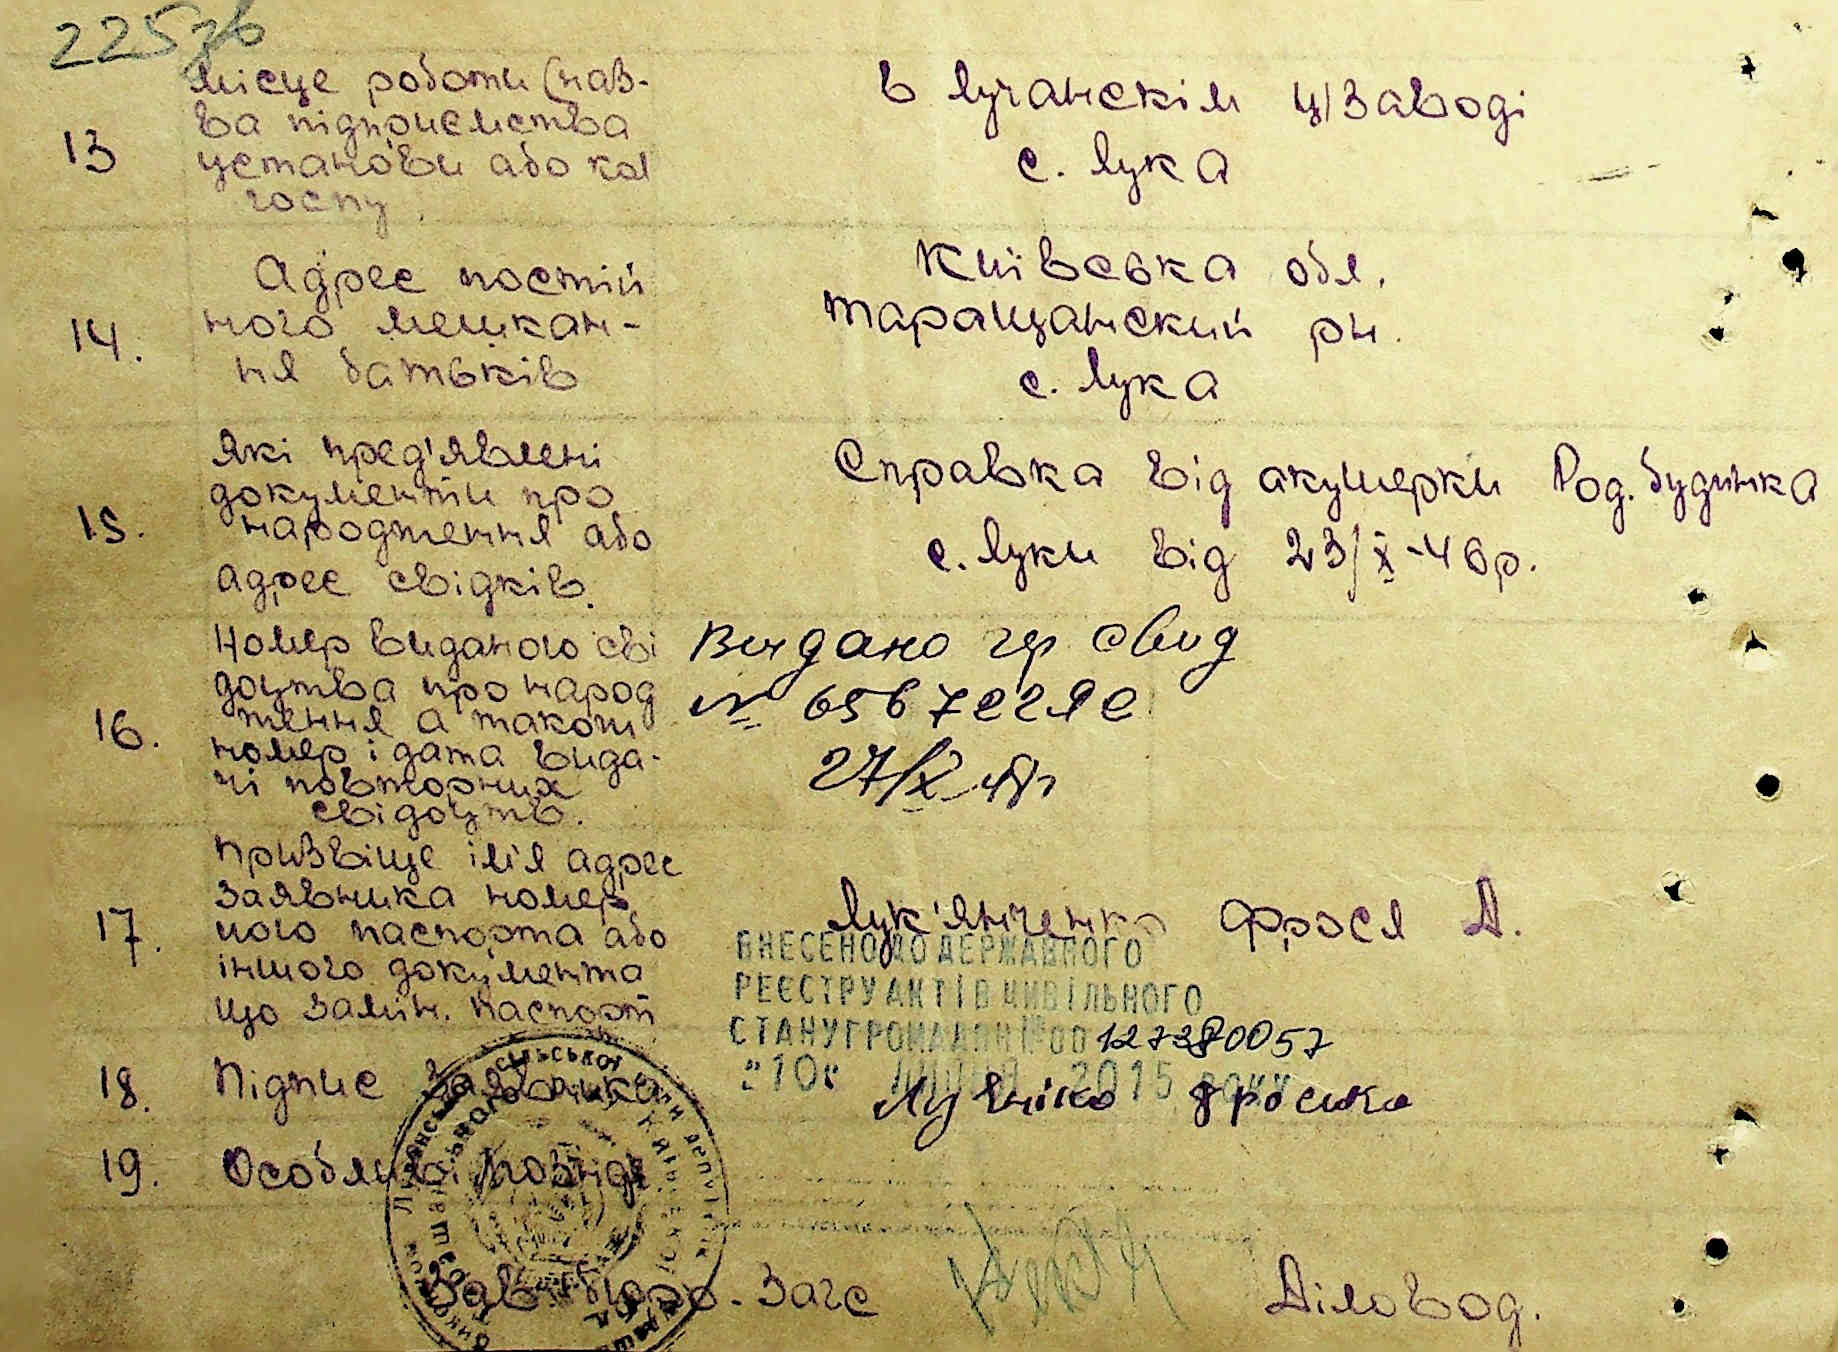 225зв
13
місце роботи (наз-
ва підприємства
установи або кол
госпу
в Лучанскім ц/заводі
с. Лука
14.
Адрес постій
ного мешкан-
ня батьків
Київська обл.
таращанский рн.
с. Лука
15.
Які пред'явлені
документи про
народження або
адрес свідків.
Справка від акушерки Род. будинка
с. Луки від 23/X-46р.
16.
Номер виданого сві
доцтва про народ
ження а також
номер і дата вида-
чі повторних
свідоцтв.
Видано гр свид
№
27/X
17.
Призвіще ім'я адрес
заявника номер
його паспорта або
іншого документа
що замін. паспорт
Лук'янченко Фрося А.
ВНЕСЕНО ДО ДЕРЖАВНОГО
РЕЄСТРУ АКТІВ ЦИВІЛЬНОГО
СТАНУ ГРОМАДЯН №00127380057
"10" 2015 року
18.
Підпис Заявника
19.
Особливі
Зав. бюро. Загс
Діловод.